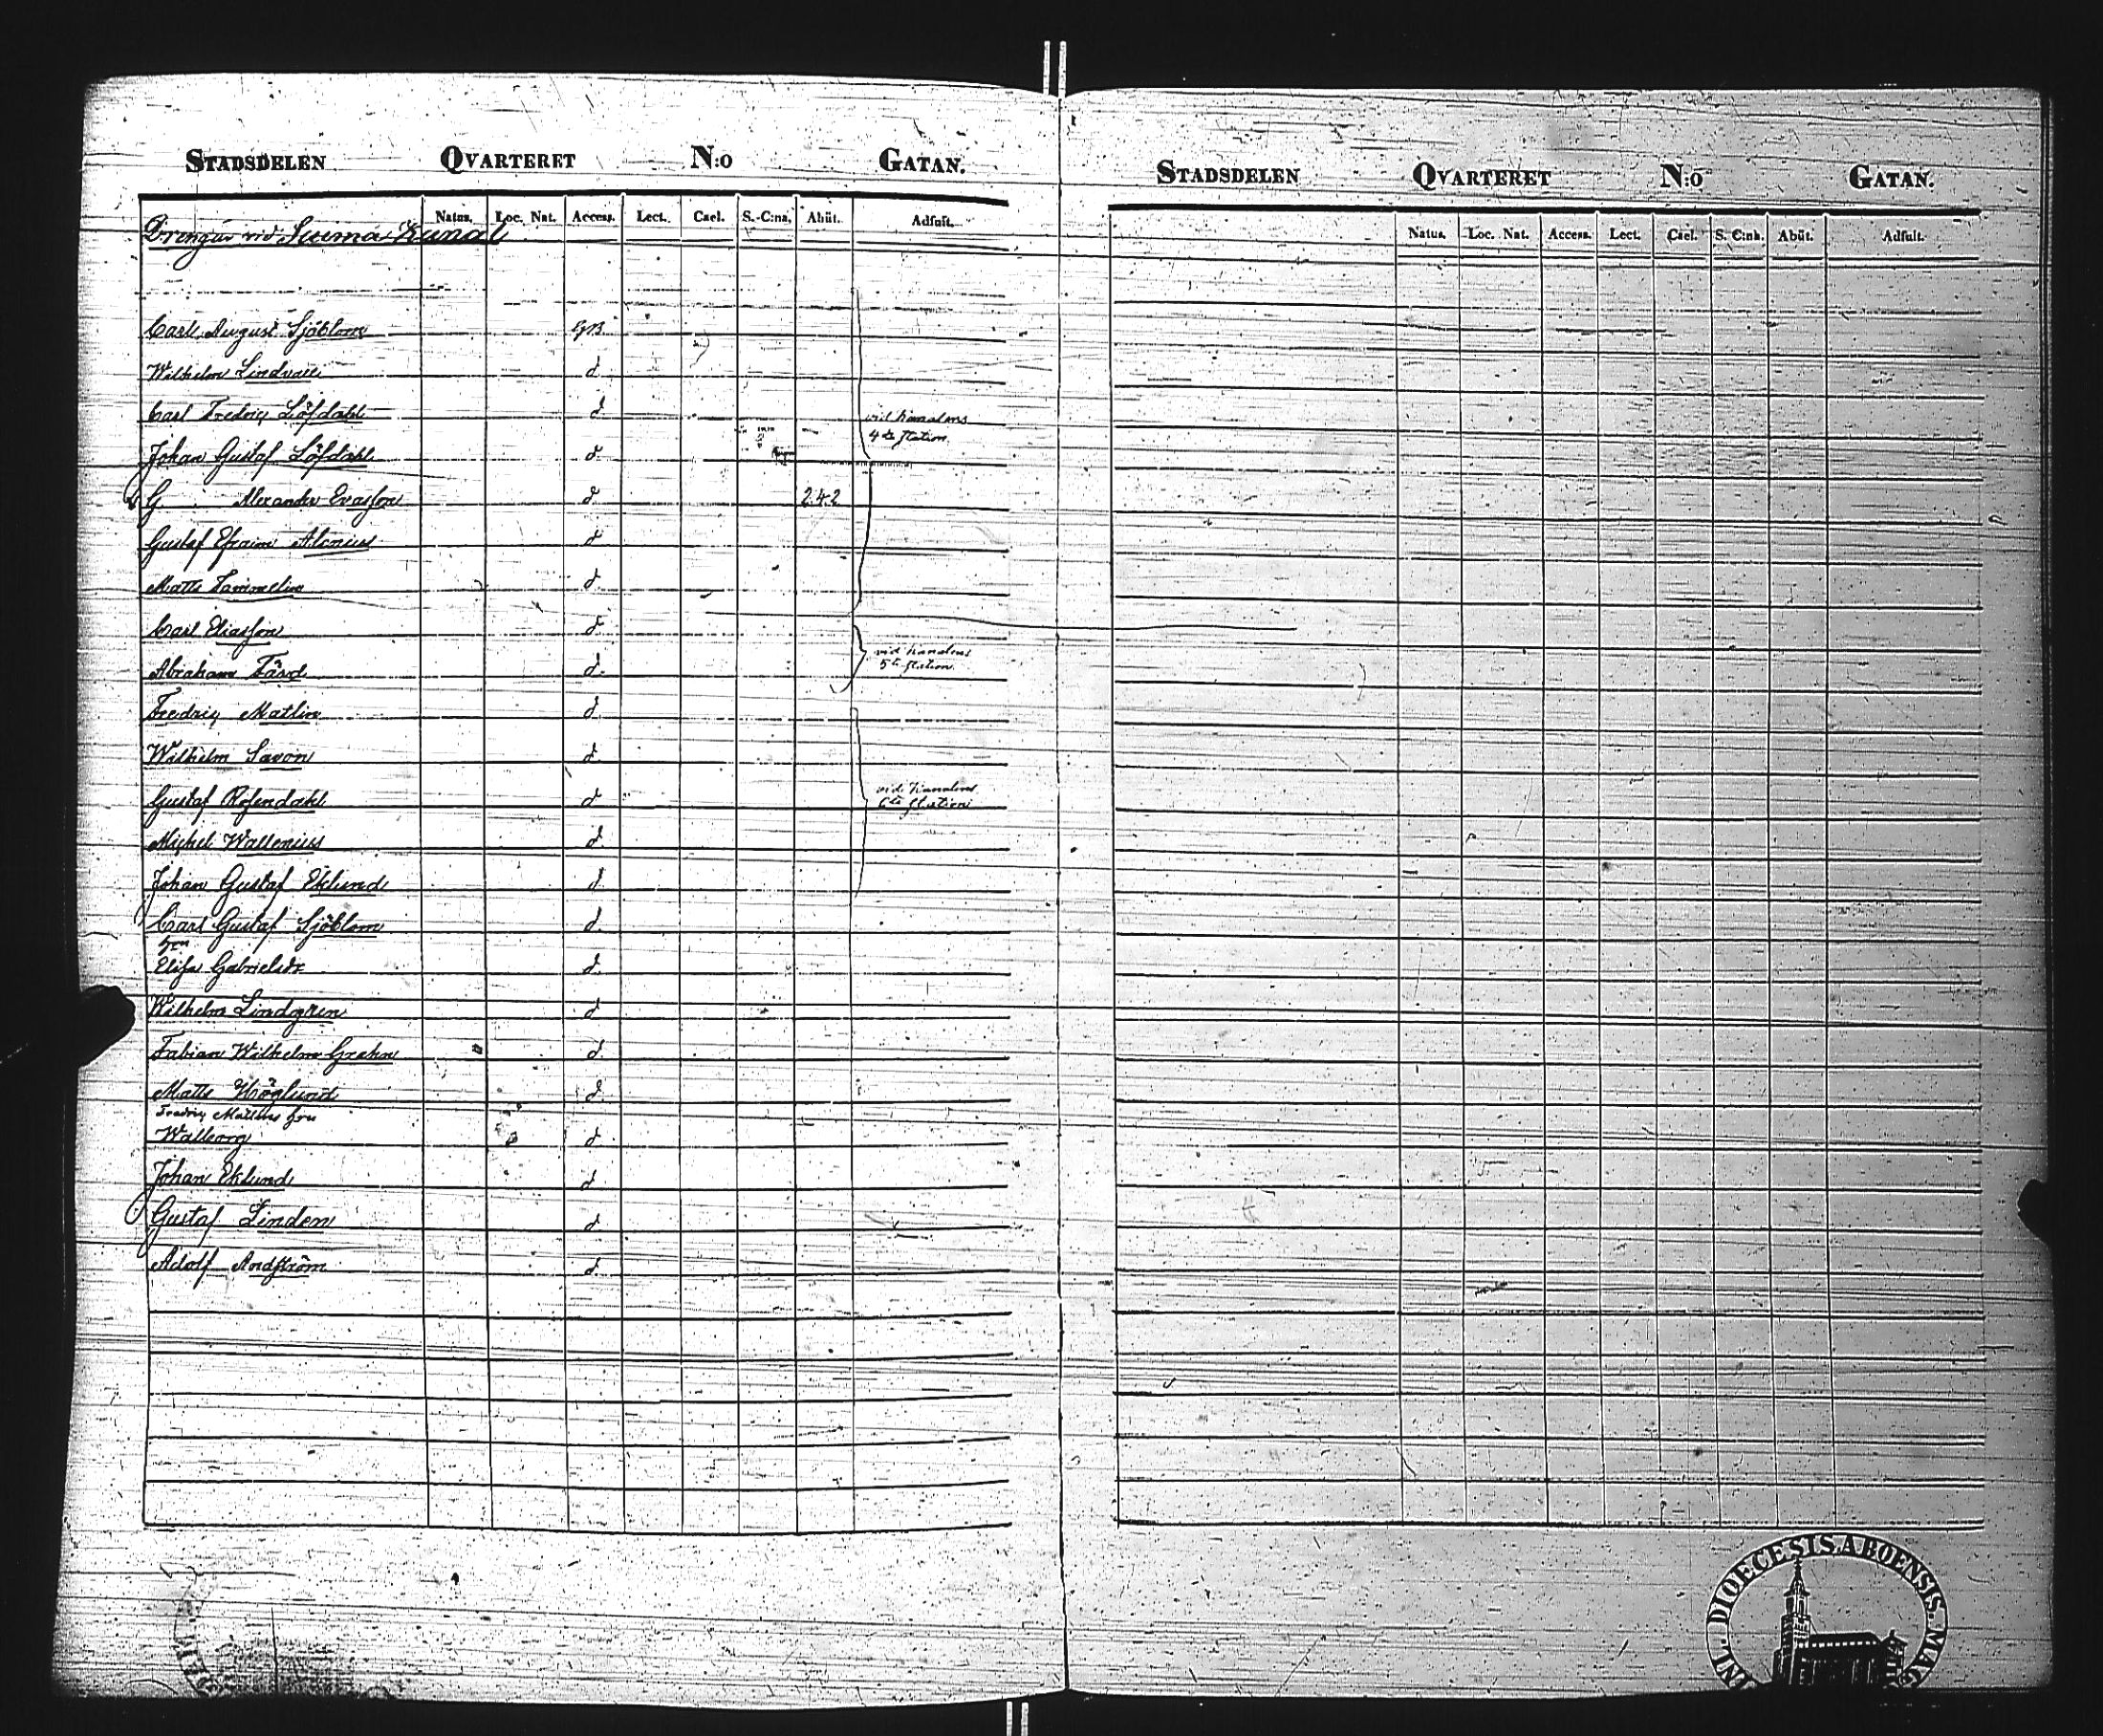 STADSDELEN QVARTERET N:o GATAN.
Natus. Loc. Nat. Access. Lect. Cael. S.-C:na. Abiit. Adfuit.
Drengar vid Saima Kanal
Carl August Sjöblom
Wilhelm Lindvall d
Carl Fredriq Löfdahl d
vid kanalens
4de station
Johan Gustaf Löfdahl d
G Alexander Evasson d 242
Gustaf Efraim Alenius d
Matts Tammelin d
Carl Eliasson d
vid kanalens
5te station
Abraham Färd d
Fredriq Matlin d
Wilhelm Savon d
vid kanalens
6te station
Gustaf Rosendahl d
Michel Wallenius d
Johan Gustaf Eklund d
Carl Gustaf Sjöblom d
hru
Elisa Gabrielsdr d
Wilhelm Lindgren d
Fabian Wilhelm Grahn d
Matts Höglund d
Fredriq Matlins hru
Walborg d
Johan Eklund d
Gustaf Linden d
Adolf Andström d
STADSDELEN QVARTERET N:o GATAN.
Natus. Loc. Nat. Access. Lect. Cael. S. C:na. Abiit. Adfuit.
DIOECESIS ABOENSIS